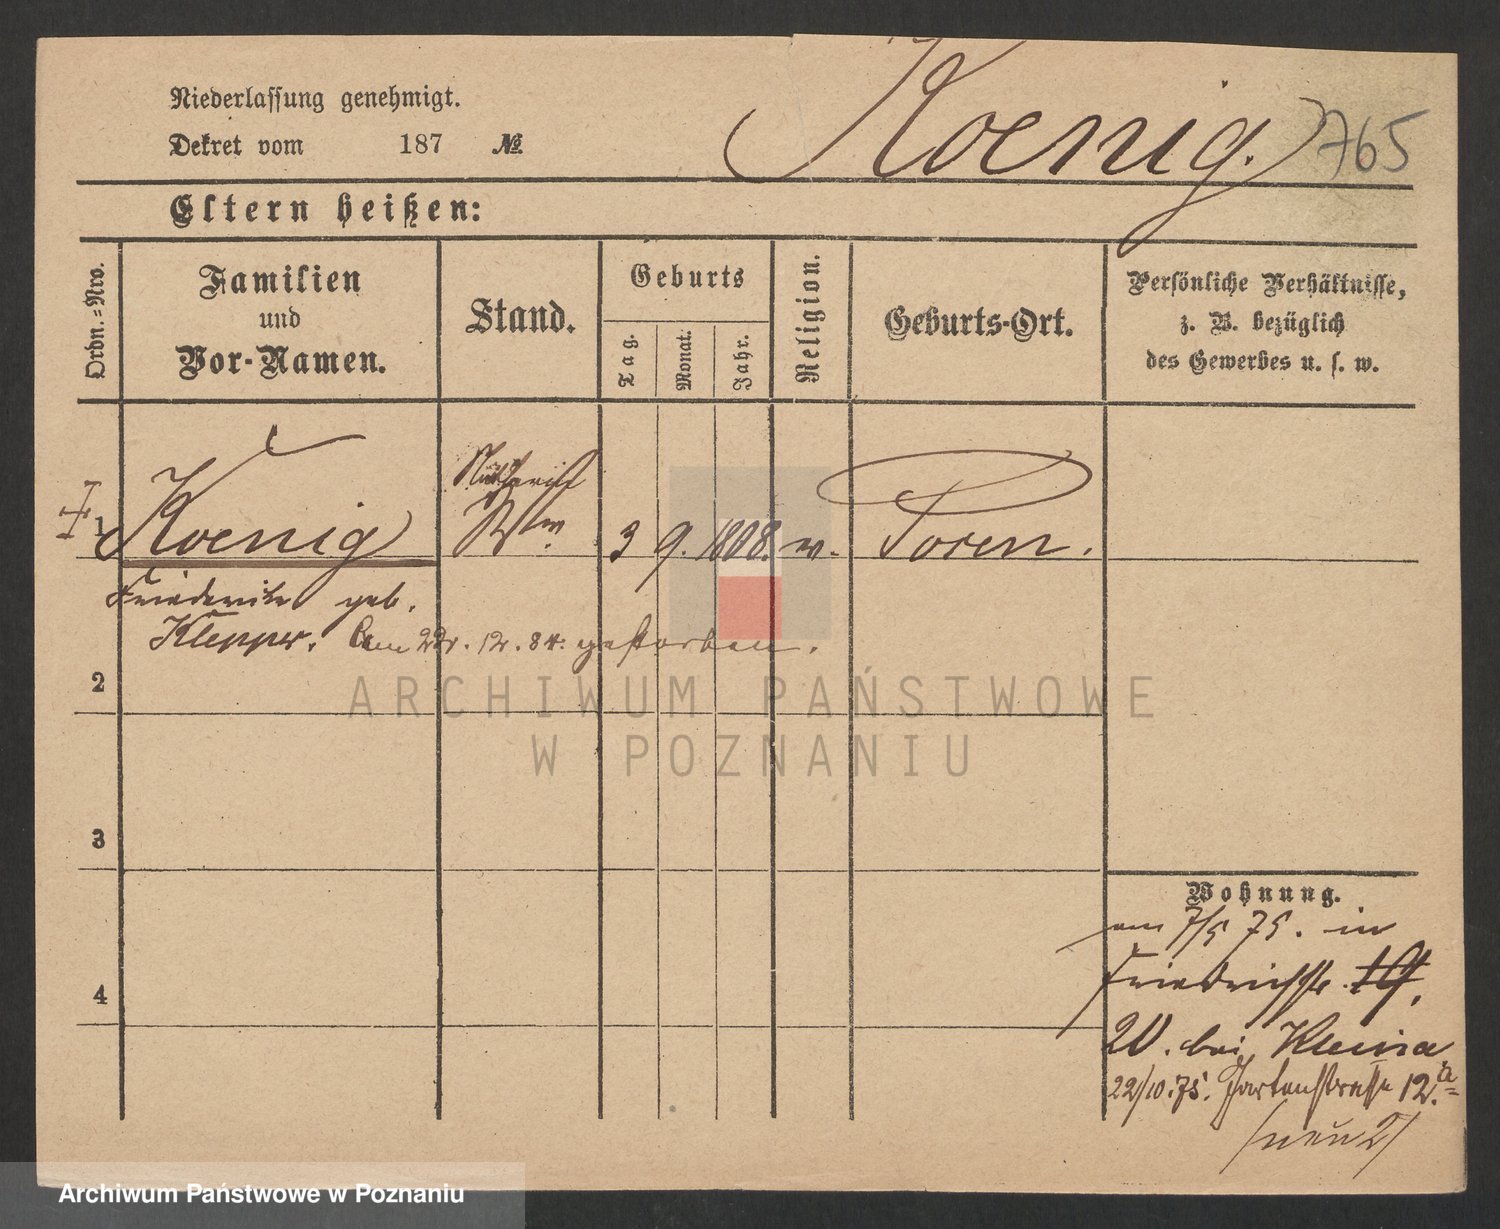 Niederlassung genehmigt.
Dekret vom 187 №
Koenig. 765
Eltern heißen:
Ordn.=Nro.
Familien
und
Vor-Namen.
Stand.
Geburts
Tag.
Monat.
Jahr.
Religion.
Geburts-Ort.
Persönliche Verhältnisse,
z. B. bezüglich
des Gewerbes u. s. w.
1 Koenig 3 9. 1808. Posen.
Friederike geb.
Klepper. 12. 84. gestorben.
2
3
4
Wohnung.
am 7/5 75. in
Friedrichstr. 19,
20. bei
22/10.75. Gartenstrasse 12.a
/neu 2/
ARCHIWUM PAŃSTWOWE
W POZNANIU
Archiwum Państwowe w Poznaniu